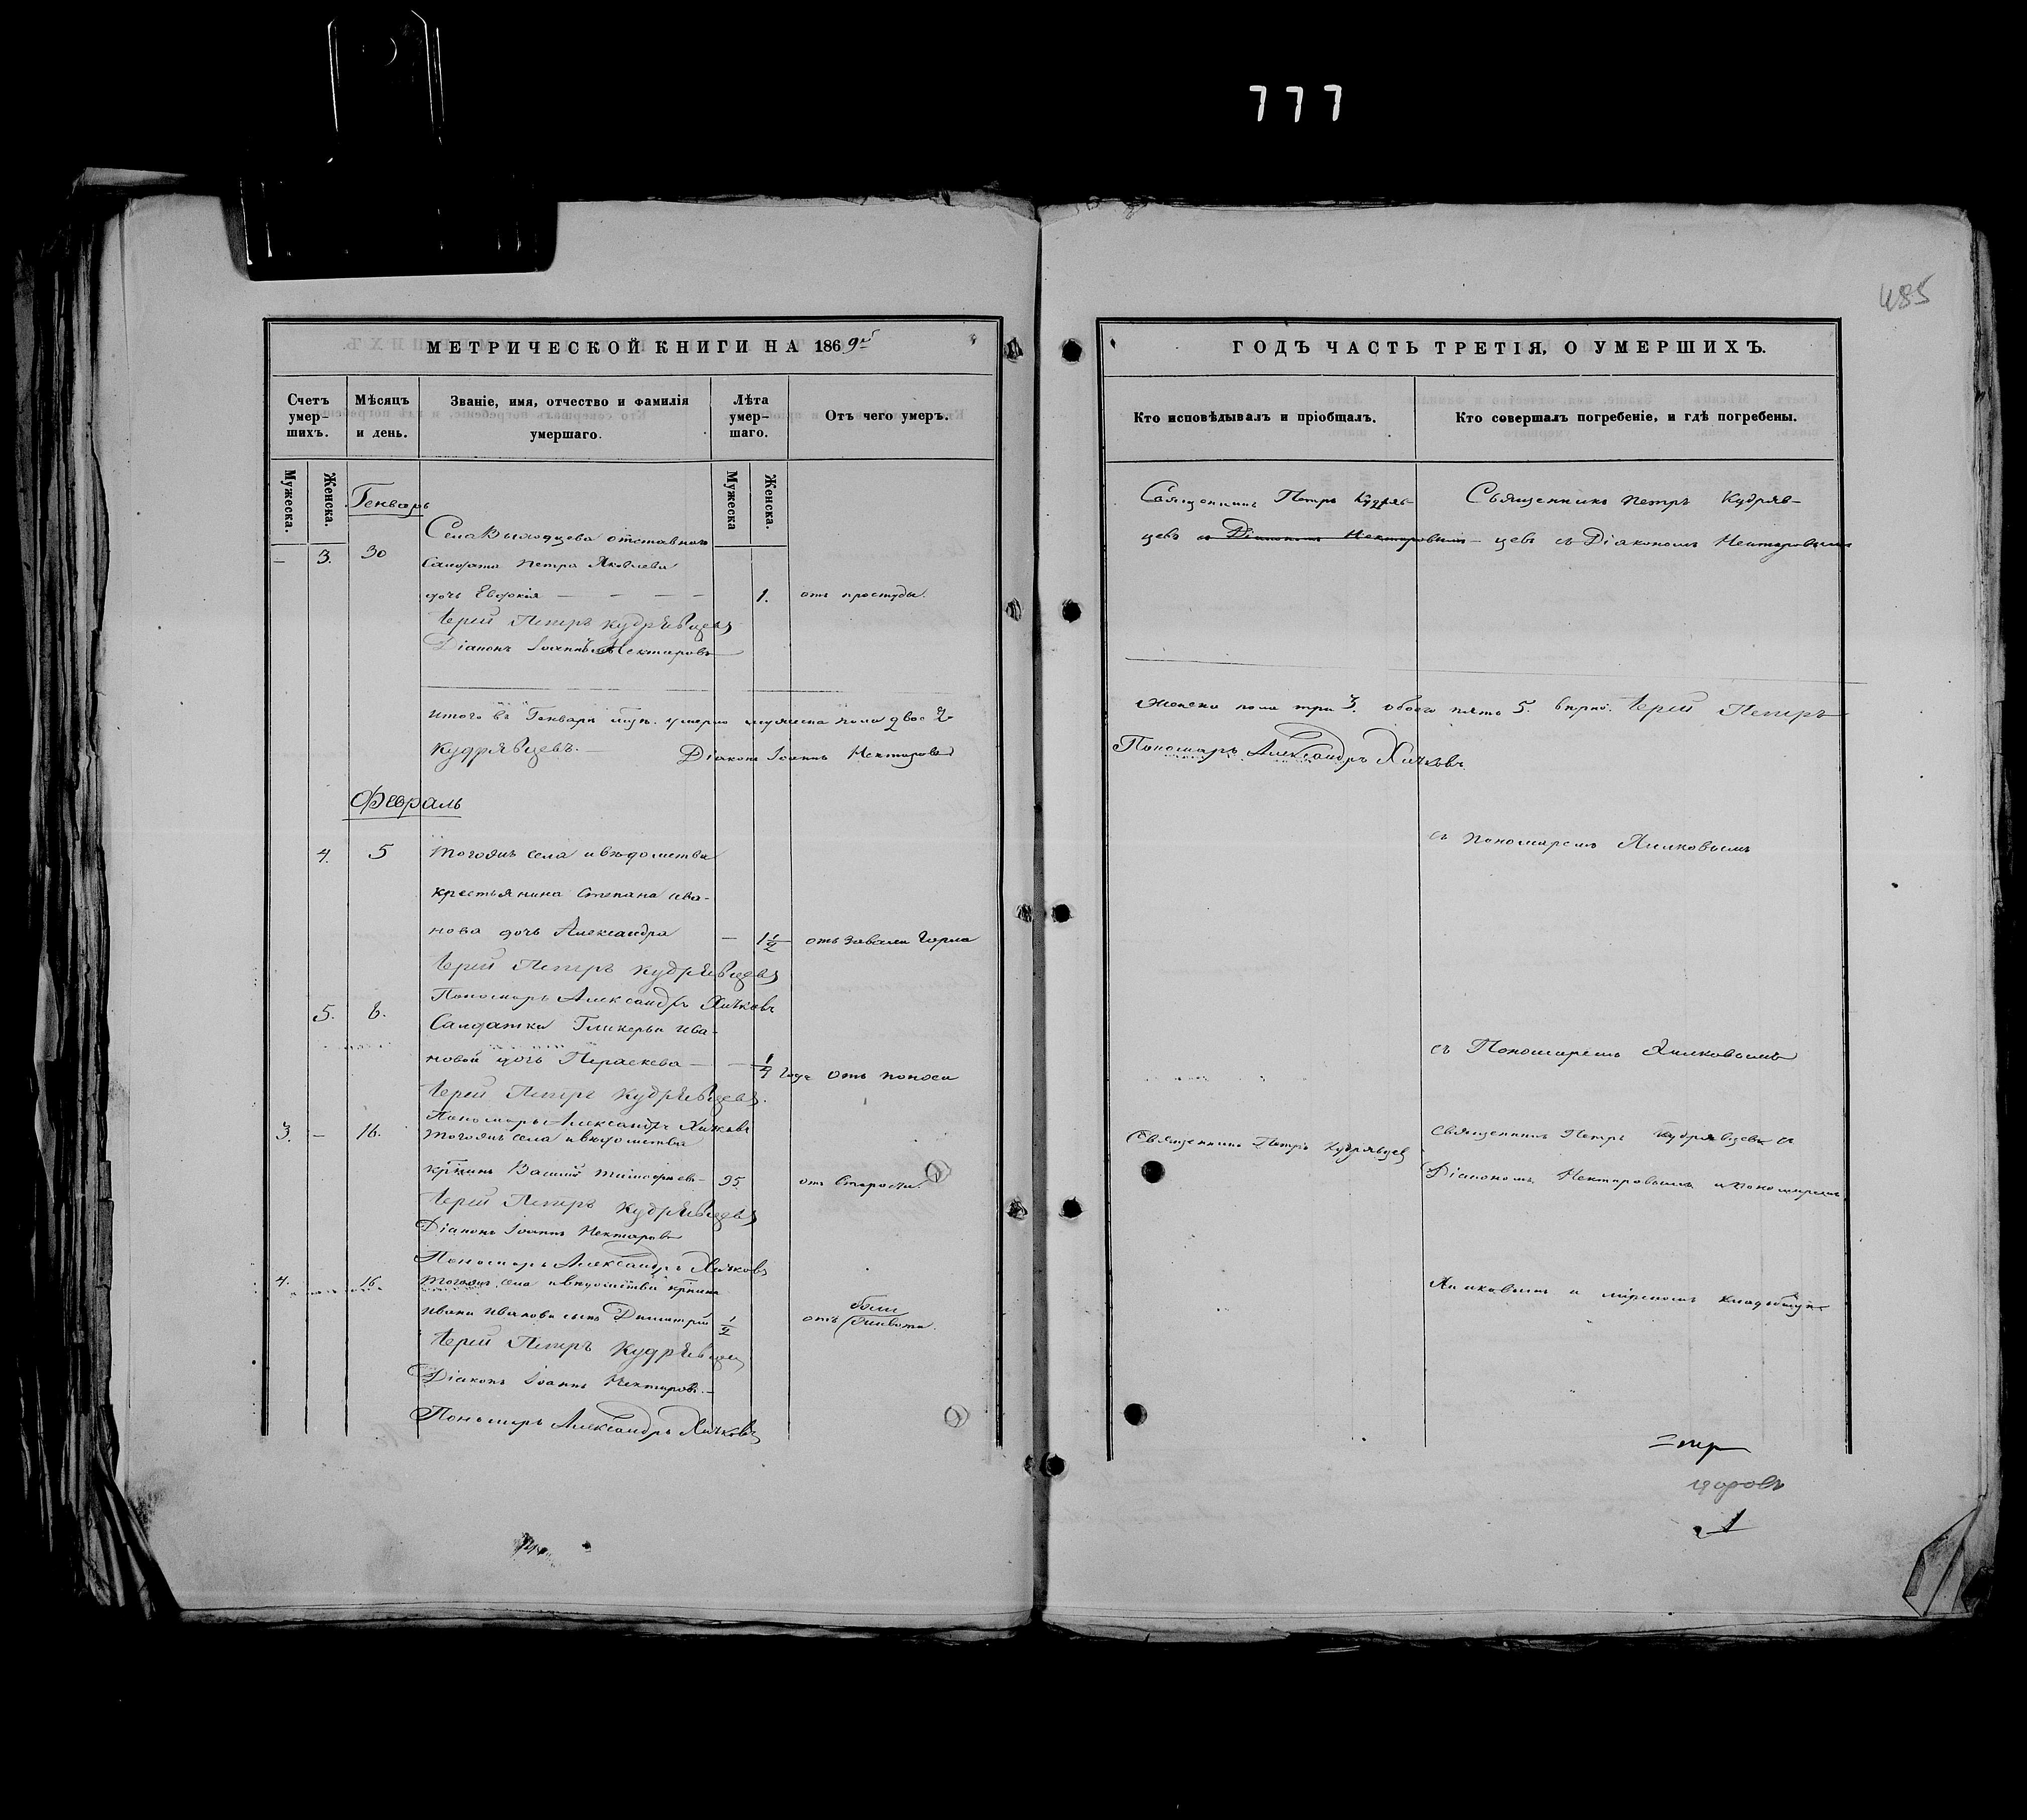 777
485
МЕТРИЧЕСКОЙ КНИГИ НА 1869й
Счетъ умер-шихъ.
Мѣсяцъ и день.
Званіе, имя, отчество и фамилія умершаго.
Лѣта умер-шаго.
Отъ чего умеръ.
Мужеска.
Женска.
Мужеска
Женска.
Генварь
Села отставнаго
— 3. 30 Салдата Петра Яковлева
дочь Евдокія — — — — 1. отъ простуды.
Іерей Петръ Кудрявцевъ
Діаконъ Іоаннъ Нектаровъ
итого въ Генварѣ умерло мужеска пола двое 2
Кудрявцевъ. — Діаконъ Іоаннъ Нектаровъ
Февраль
4. 5 Тогожъ села и вѣдомства
крестьянина Степана Ива-
нова дочь Александра — 1 1/2 отъ завали горла
Іерей Петръ Кудрявцевъ
Пономарь Александръ Хилковъ
5. 8. Салдатки Гликерьи Ива-
новой дочь Параскева — — 1/4 года отъ поноса
Іерей Петръ Кудрявцевъ.
Пономарь Александръ Хилковъ
3. — 16. Тогожъ села и вѣдомства
кр̃нинъ Василій — 95 отъ старости.
Іерей Петръ Кудрявцевъ
Діаконъ Іоаннъ Нектаровъ
Пономарь Александръ Хилковъ
4. 16 Тогожъ села и вѣдомства кр̃нина
Ивана Иванова сынъ Димитрій 1/2 отъ боли живота.
Іерей Петръ Кудрявцевъ
Діаконъ Іоаннъ Нектаровъ. —
Пономарь Александръ Хилковъ
ГОДЪ ЧАСТЬ ТРЕТІЯ, О УМЕРШИХЪ.
Кто исповѣдывалъ и пріобщалъ.
Кто совершалъ погребеніе, и гдѣ погребены.
Священникъ Петръ Кудряв-
цевъ съ Діакономъ Нектаровымъ —
Священникъ Петръ Кудряв-
цевъ съ Діакономъ Нектаровымъ
женска пола три 3. обоего пять 5. вѣрно. Іерей Петръ
Пономарь Александръ Хилковъ
съ Пономаремъ Хилковымъ
съ Пономаремъ Хилковымъ
Священникъ Петръ Кудрявцевъ
Священникъ Петръ Кудрявцевъ съ
Діакономъ Нектаровымъ и пономаремъ
Хилковымъ
1